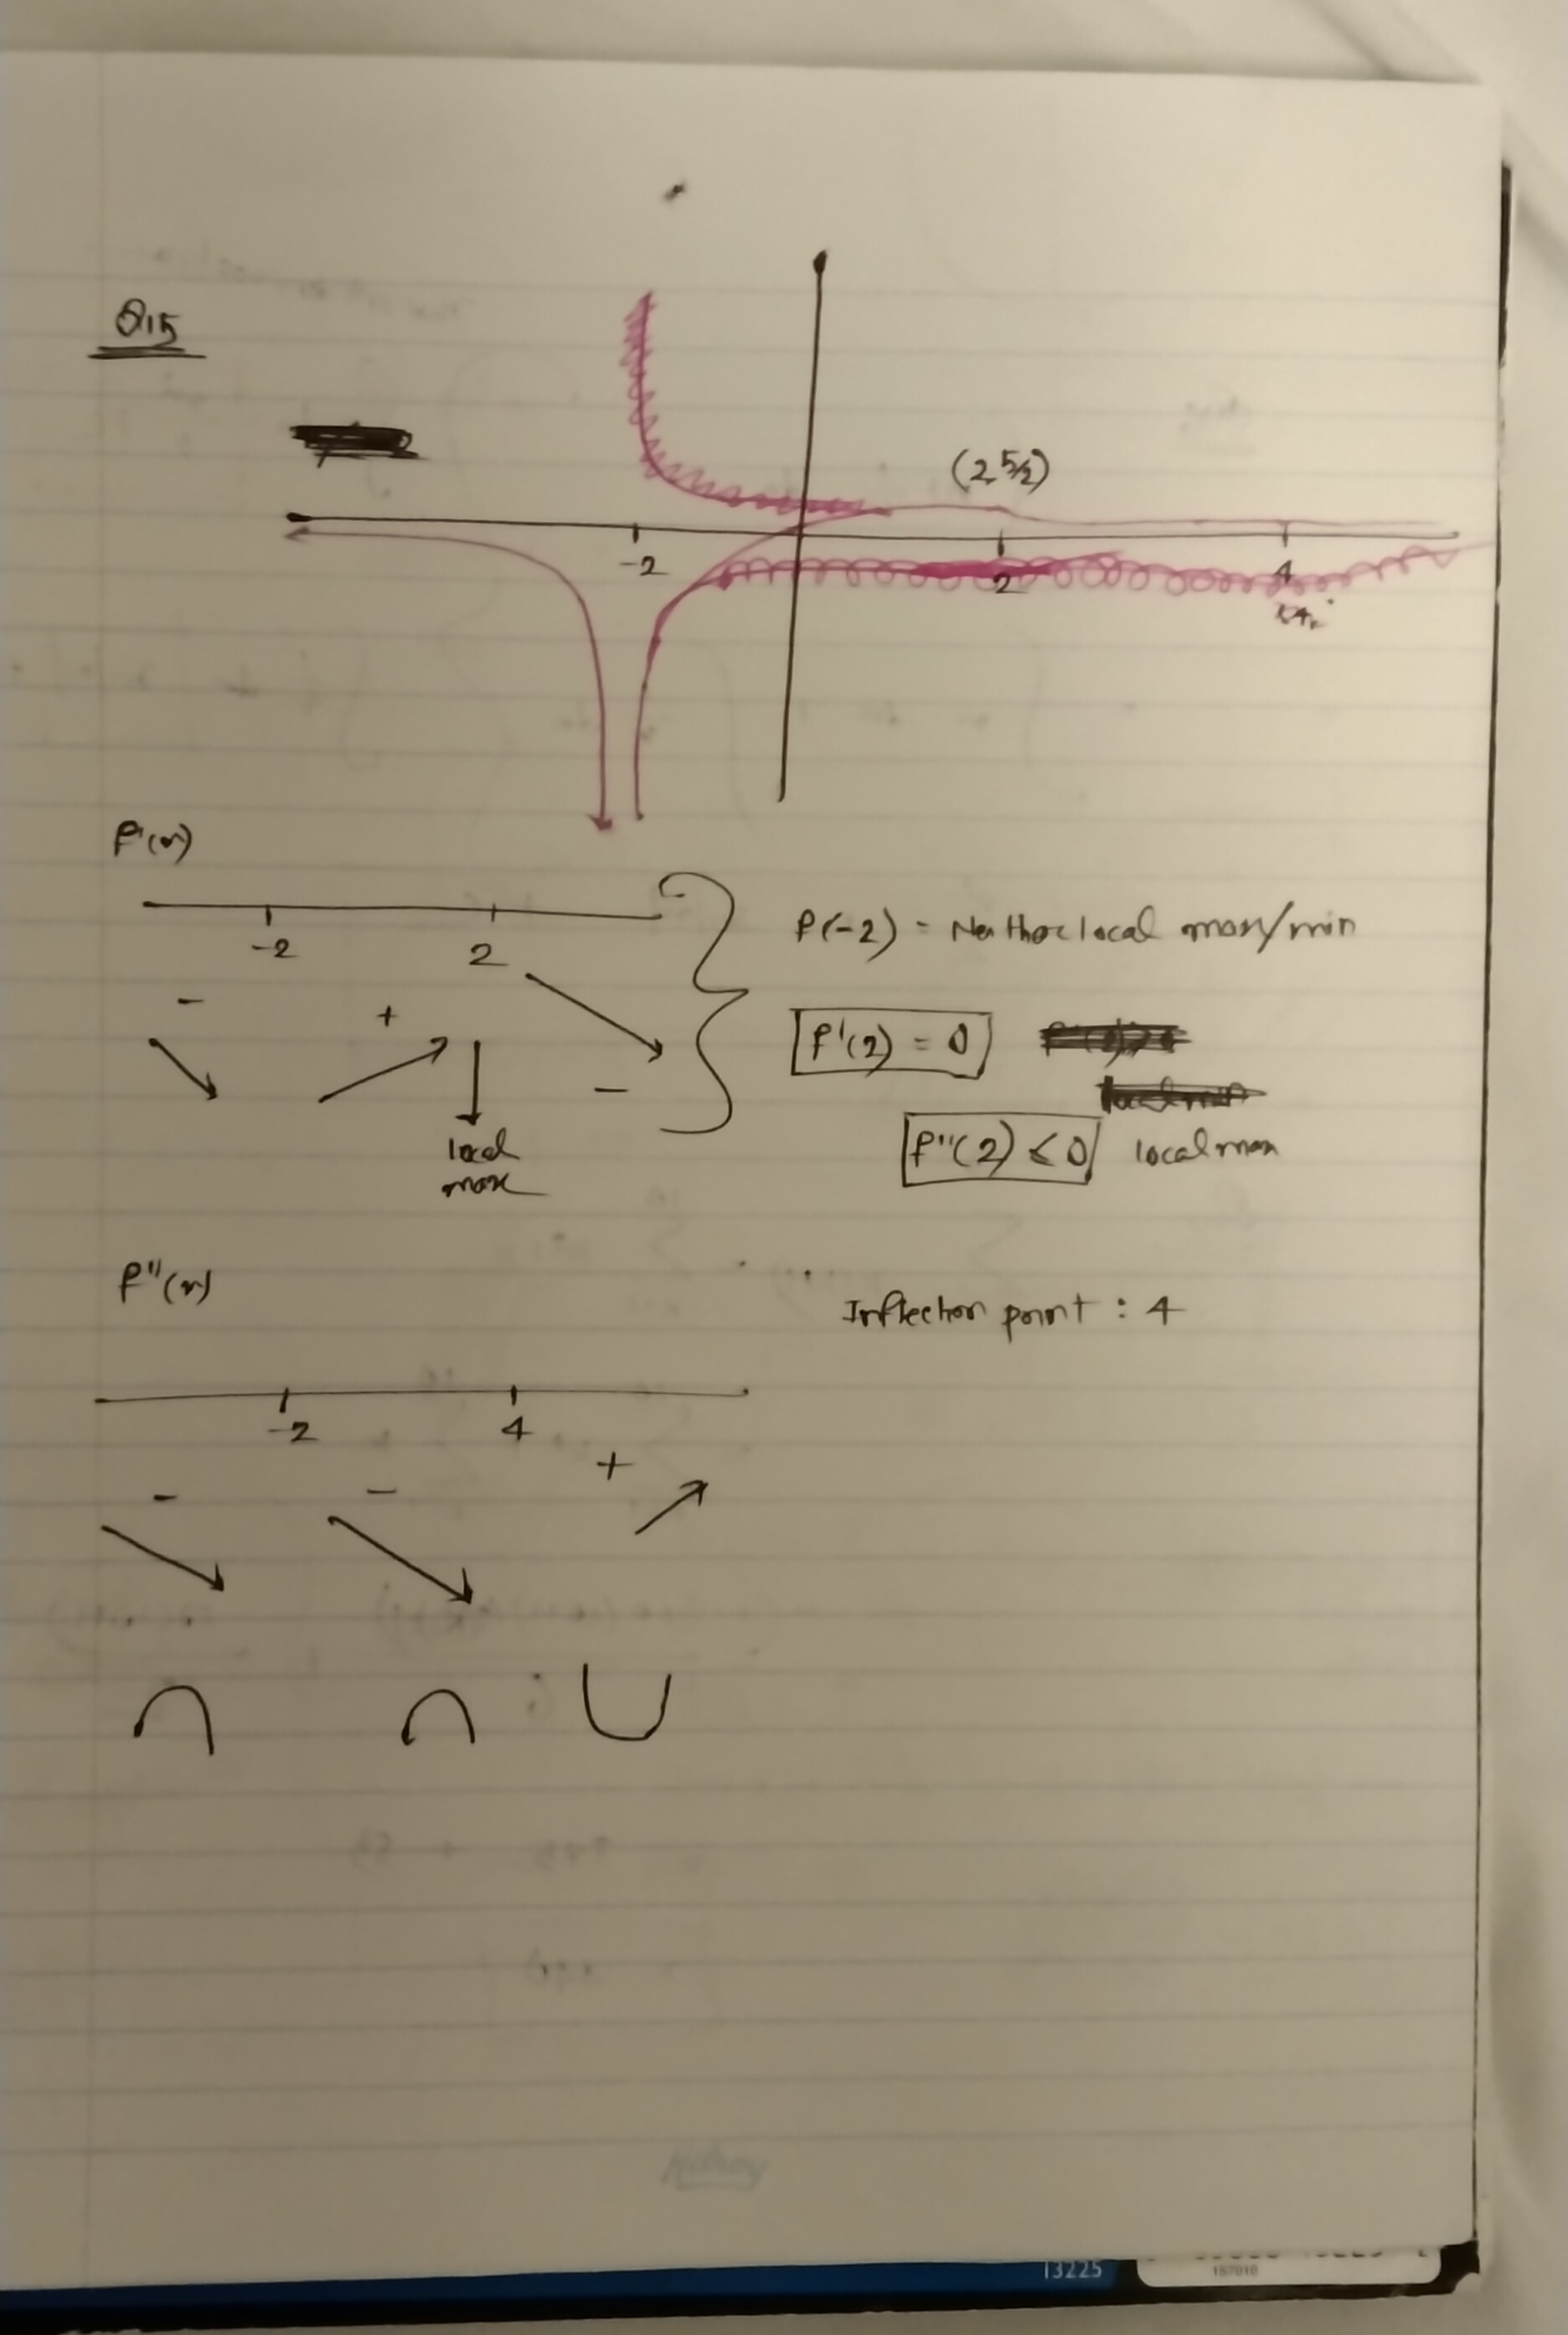 Q15
(2, 5/2)
-2
2
4
f'(x)
-2 2
- + -
local
max
f(-2) = Neither local max/min
f'(2) = 0
f''(2) < 0 local max
f''(x)
Inflection point : 4
-2 4
- - +
Hilroy
13225